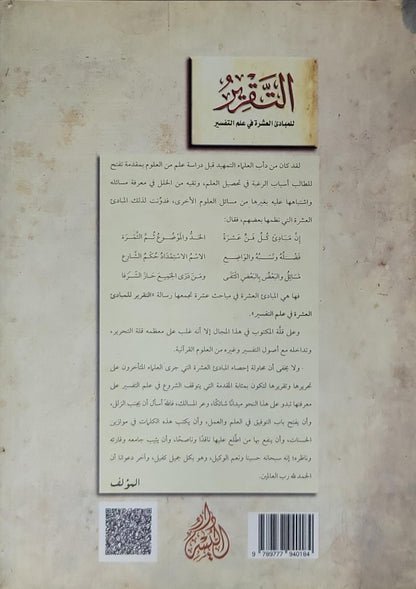 التَّقْرِيرُ
للمبادئ العشرة في علم التفسير
لقد كان من دأب العلماء التمهيد قبل دراسة علم من العلوم بمقدمة تفتح
للطالب أسباب الرغبة في تحصيل العلم، وتقيه من الخلل في معرفة مسائله
واشتباهها عليه بغيرها من مسائل العلوم الأخرى، فدوّنت لذلك المبادئ
العشرة التي نظمها بعضهم، فقال:
إنّ مَبَادِئَ كُلِّ فَنٍّ عَشَرَهْ الحَدُّ والموْضُوعُ ثُمَّ الثَّمَرَهْ
فَضْلُهُ ونِسْبَةٌ والوَاضِعْ الاسْمُ الاسْتِمْدَادُ حُكْمُ الشَّارِعْ
مَسَائِلٌ والبَعْضُ بِالبَعْضِ اكْتَفَى ومَنْ دَرَى الجَمِيعَ حَازَ الشَّرَفَا
فها هي المبادئ العشرة في مباحث عشرة تجمعها رسالة «التقرير للمبادئ
العشرة في علم التفسير».
وعلى قلّة المكتوب في هذا المجال إلا أنه غلب على معظمه قلة التحرير،
وتداخله مع أصول التفسير وغيره من العلوم القرآنية.
ولا يخفى أن محاولة إحصاء المبادئ العشرة التي جرى العلماء المتأخرون على
تحريرها وتقريرها لتكون بمثابة المقدمة التي يتوقف الشروع في علم التفسير على
معرفتها تبدو على هذا النحو ميدانًا شائكًا، وعر المسالك، فالله أسأل أن يجنب الزلل،
وأن يفتح باب التوفيق في العلم والعمل، وأن يكتب هذه الكلمات في موازين
الحسنات، وأن ينفع بها من اطّلع عليها ناقدًا وناصحًا، وأن يثيب جامعه وقارئه
وناظره؛ إنه سبحانه حسبنا ونعم الوكيل، وهو بكل جميل كفيل، وآخر دعوانا أن
الحمد لله رب العالمين.
المؤلف
9 789777 940184